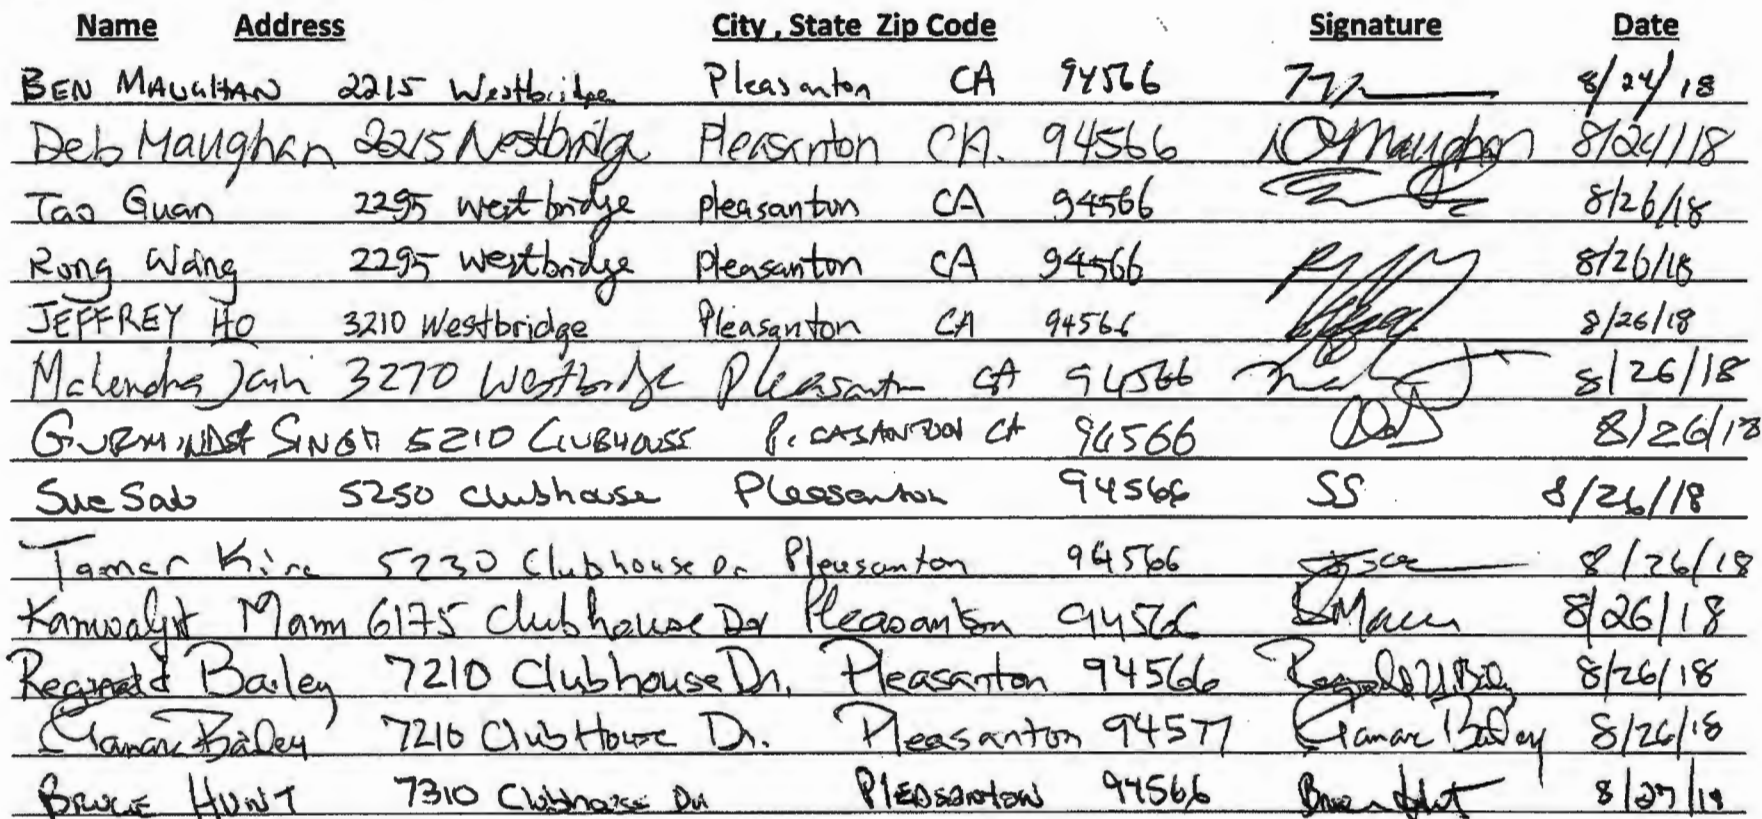 Name Address City , State Zip Code Signature Date
BEN MAUGHAN 2215 Westbridge Pleasanton CA 94566 8/24/18
Deb Maughan 2215 Westbridge Pleasanton CA. 94566 DMaughan 8/24/18
Tao Guan 2295 westbridge pleasanton CA 94566 8/26/18
Rong Wang 2295 westbridge pleasanton CA 94566 8/26/18
JEFFREY HO 3210 Westbridge Pleasanton CA 94566 8/26/18
Mahendra Jain 3270 Westbridge Pleasanton CA 94566 8/26/18
GURMINDER SINGH 5210 CLUBHOUSE CA 94566 8/26/18
Sue 5250 clubhouse Pleasanton 94566 SS 8/26/18
Tamer 5230 Clubhouse Dr Pleasanton 94566 8/26/18
Kanwaljit Mann 6175 Clubhouse Dr Pleasanton 94566 Mann 8/26/18
Reginald Bailey 7210 Clubhouse Dr. Pleasanton 94566 8/26/18
Bailey 7210 ClubHouse Dr. Pleasanton 94577 Bailey 8/26/18
BRUCE HUNT 7310 Clubhouse Dr Pleasanton 94566 8/27/18